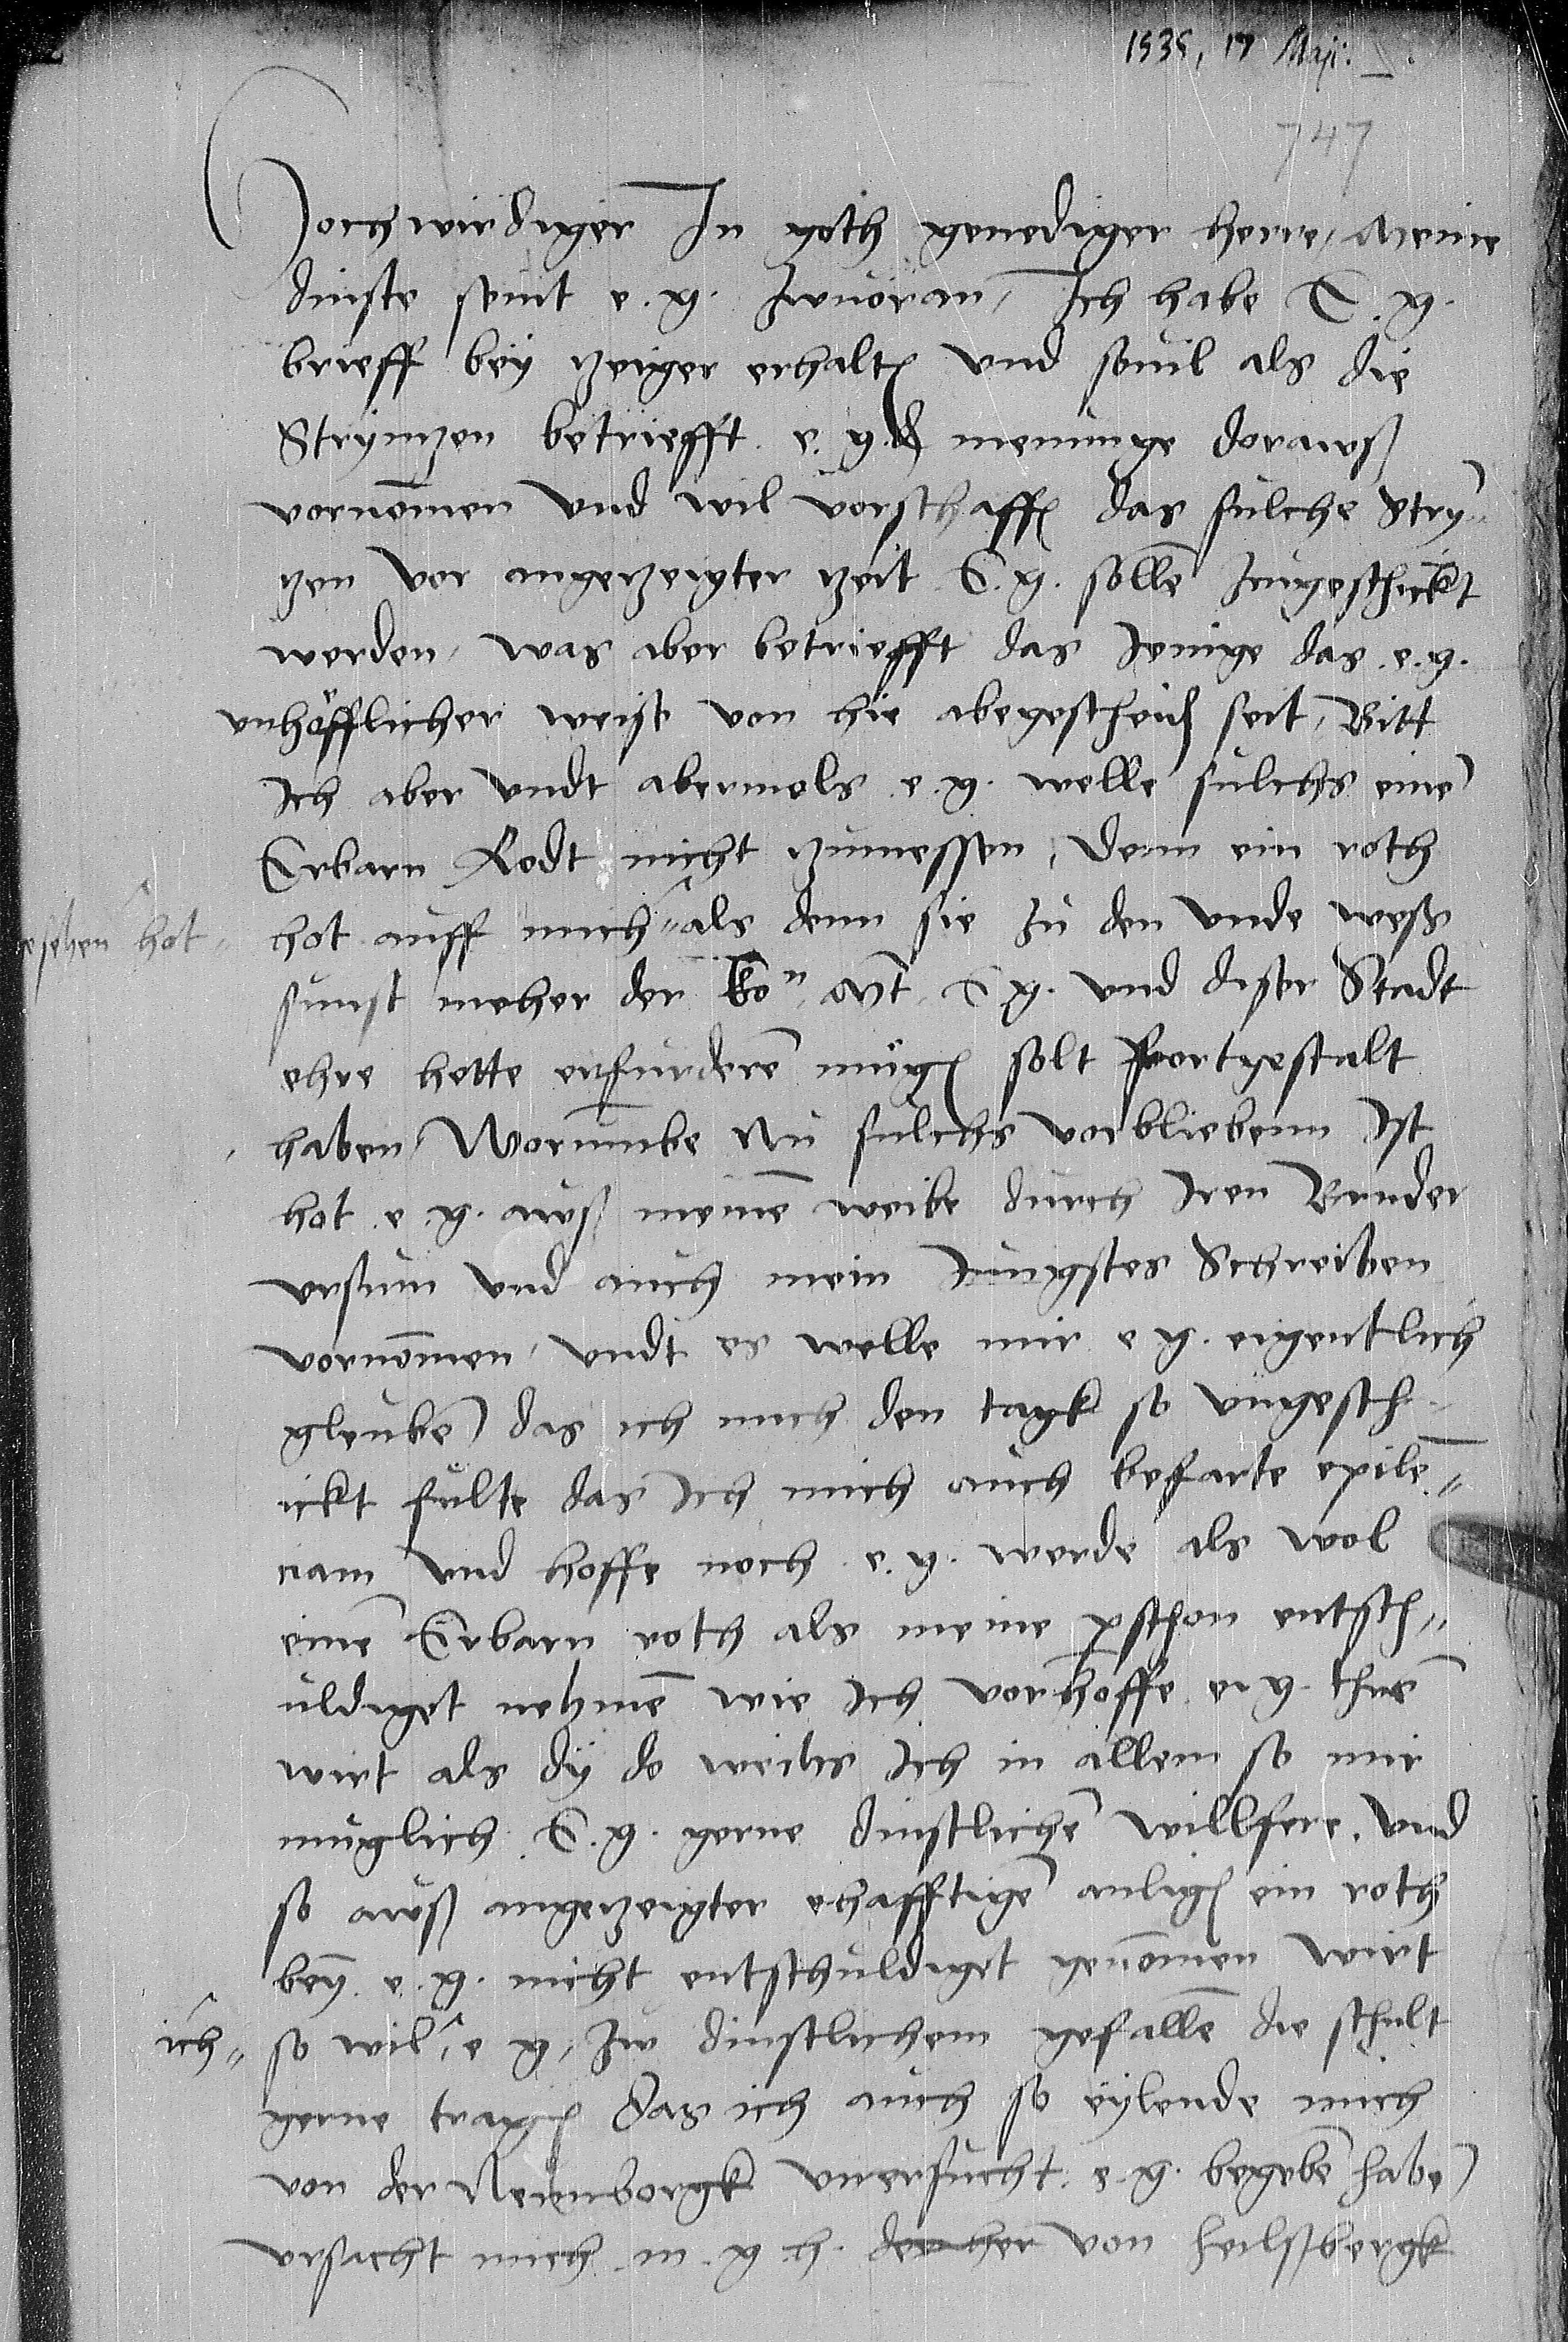 1535, 17 Maji.
747
Hochwirdiger In goth genediger herre, Meine
dinste seint e. g. Zwuöran, Ich habe E. g.
brieff bey zceiger erhalten und souil als die
Strymzen betriefft e. g. meinunge dorauß
vornomen und wil vorschaffen das sulche Stry
zen vor angezceigter zceit E. g. sollen zugeschickt
werden, was aber betriefft das Jenige das e. g.
unhöfflicher weise von hie abegescheiden seit, Bitt
Ich aber undt abermols e. g. welle sulchs eine
Erbarn Rodt nicht zumessen, Denn ein roth
gesehen hot
hot auff mich als denn sie zu den unde weß
sunst meher der ko. Mt, E g. und diser Stadt
ehre hette erfurdere mügen solt fortgestalt
haben, Worumbe Nu sulchs vorbliebenn Ist
hot e. g. auß meine weibe durch Iren Bruder
ursum und auch mein Jungstes Schreiben
vornomen, undt es welle mir e g. eigentlich
gleube das ich mich den tagk so ungesch
ickt fulte das Ich mich auch befarte epile
ciam und hoffe noch e. g. werde als wol
eine Erbarn roth als meine pschon entsch
uldiget nehme wie Ich vorhoffe e. g. thue
wirt als dy do weis Ich in allem so mir
muglich E. g. gerne dinstliche willfere. und
so auß angezceigter ehafftige anligen ein roth
bey e. g. nicht entschuldiget genomen wirt
ich
so wil, e g, zw dinstlichem gefalle die schult
gerne tragen Das ich auch so eylende mich
von der Neumborgk unersucht e. g. begebe habe
ursacht mich m. g. h. der her von heilsbergk